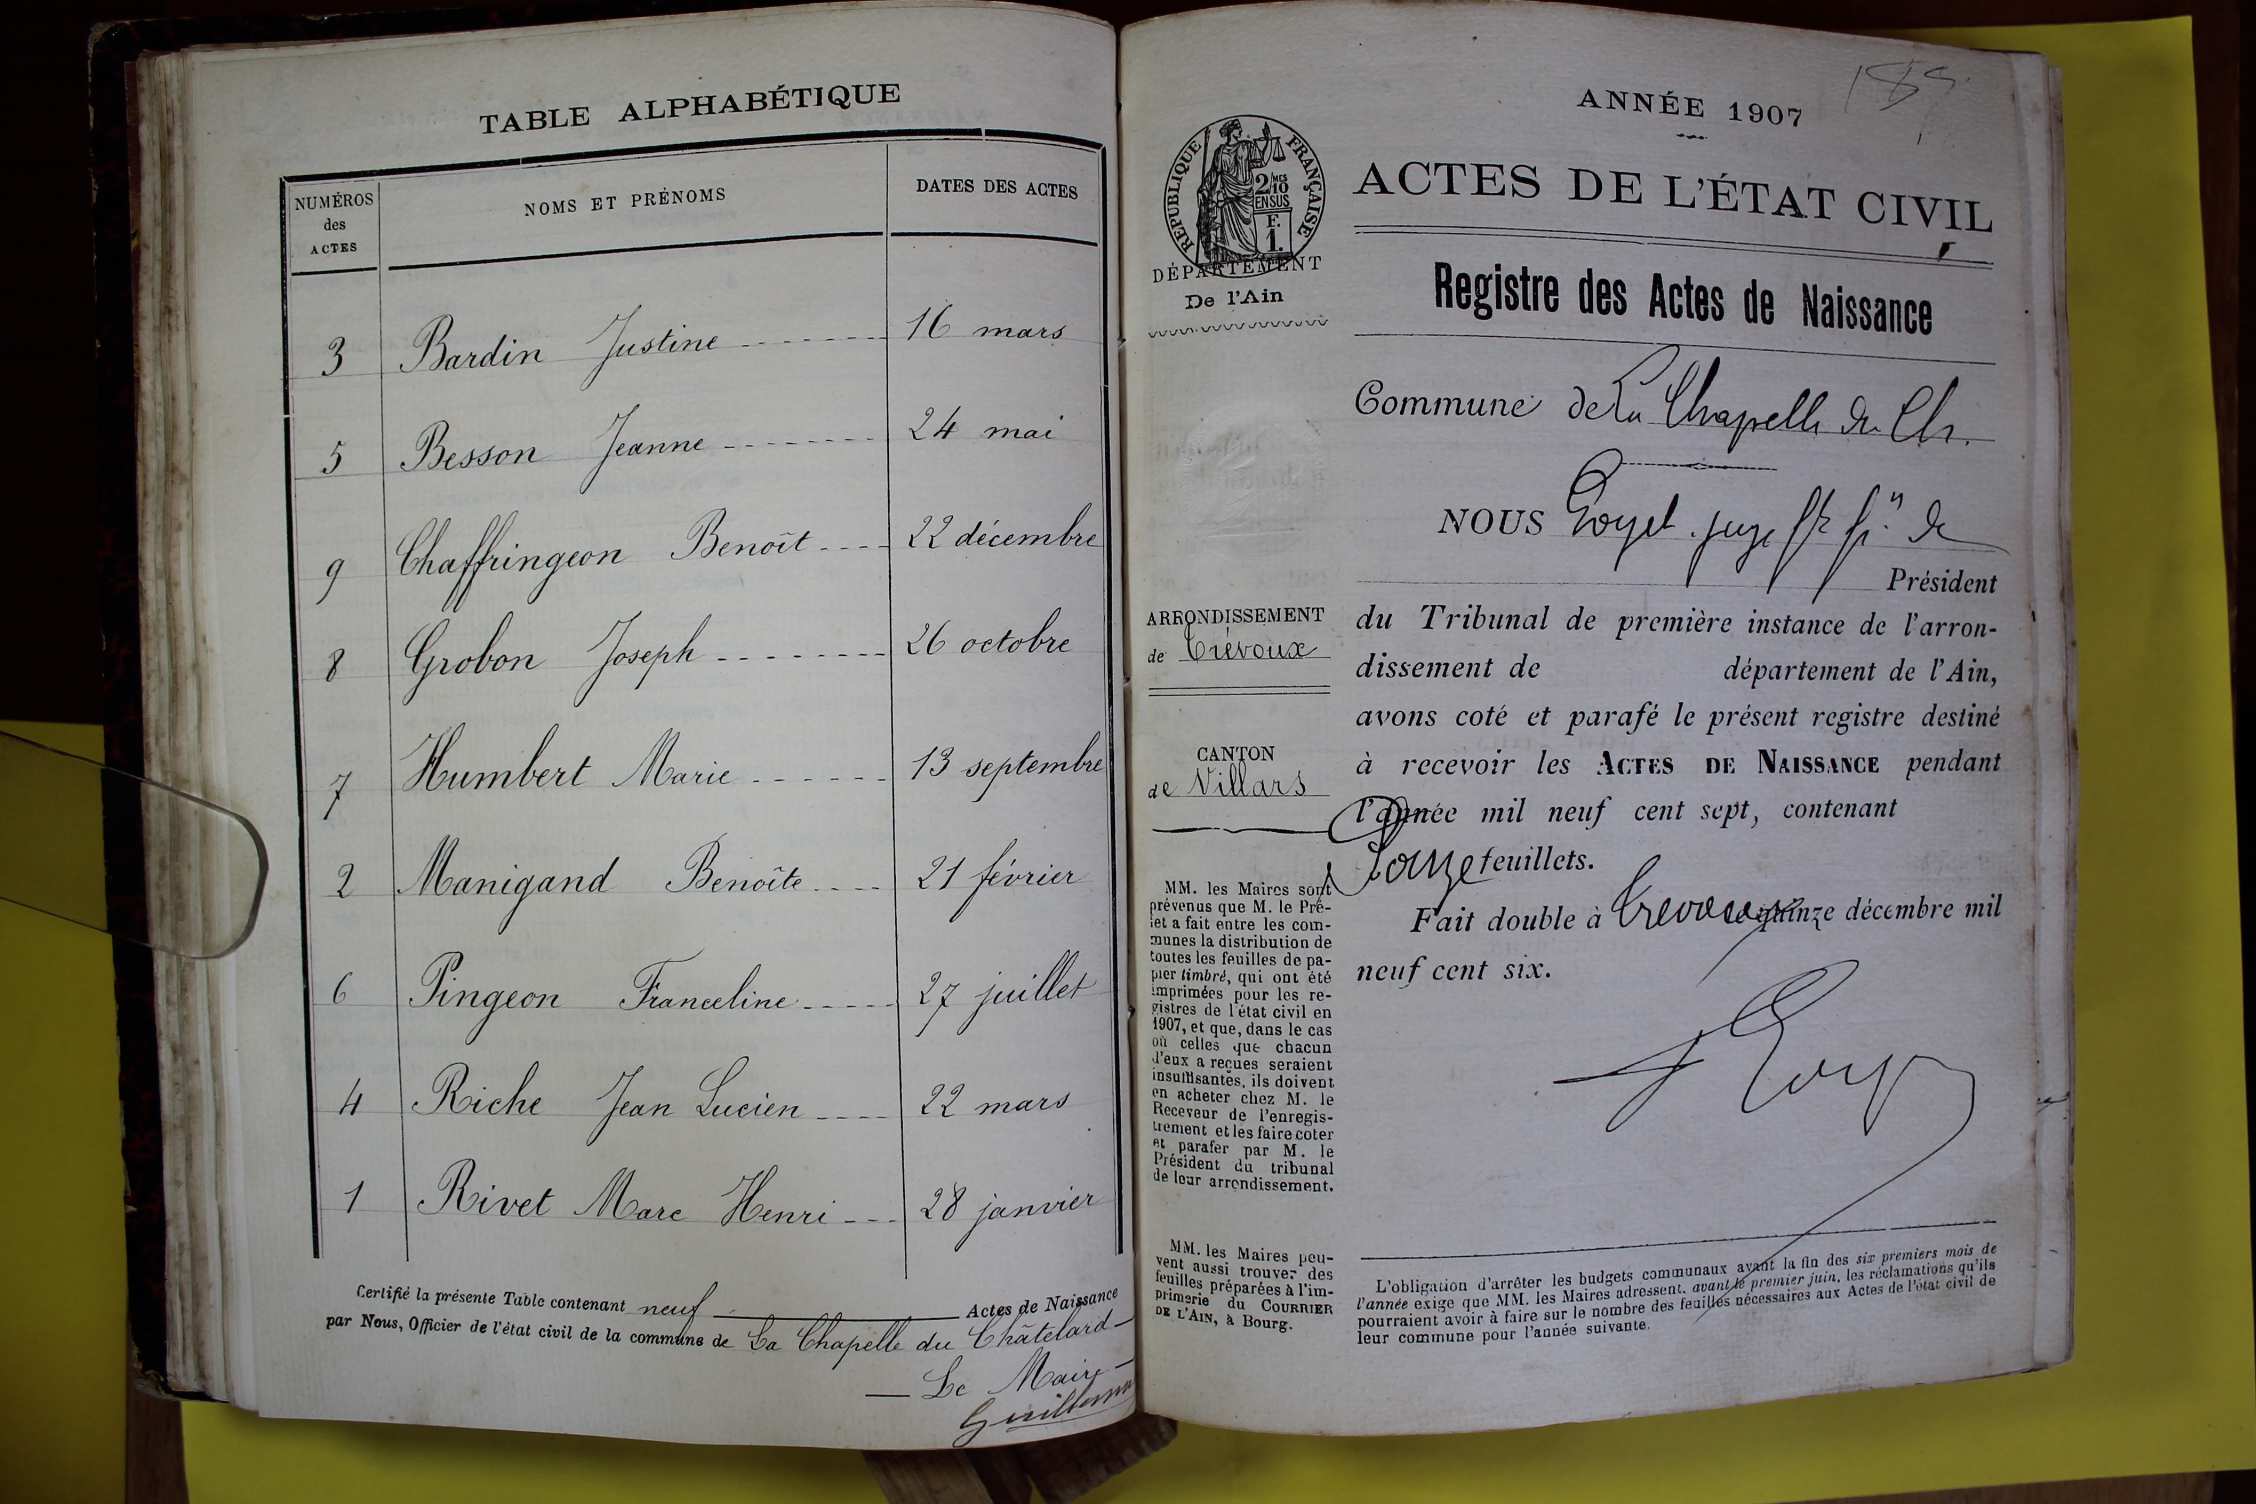 TABLE ALPHABÉTIQUE
NUMÉROS des ACTES NOMS ET PRÉNOMS DATES DES ACTES
3 Bardin Justine 16 mars
5 Besson Jeanne 24 mai
9 Chaffringeon Benoît 22 décembre
8 Grobon Joseph 26 octobre
7 Humbert Marie 13 septembre
2 Manigand Benoîte 21 février
6 Pingeon Franceline 27 juillet
4 Riche Jean Lucien 22 mars
1 Rivet Marc Henri 28 janvier
Certifié la présente Table contenant neuf Actes de Naissance
par Nous, Officier de l'état civil de la commune de La Chapelle du Châtelard
Le Maire
ANNÉE 1907
RÉPUBLIQUE FRANÇAISE
2/10 MES
EN SUS
F.
1.
ACTES DE L'ÉTAT CIVIL
DÉPARTEMENT
De l'Ain
Registre des Actes de Naissance
Commune de La Chapelle du Ch.
NOUS juge
Président
ARRONDISSEMENT
de Trévoux
du Tribunal de première instance de l'arron-
dissement de département de l'Ain,
avons coté et parafé le présent registre destiné
CANTON
de Villars
à recevoir les ACTES DE NAISSANCE pendant
l'année mil neuf cent sept, contenant
feuillets.
Fait double à Trevoux le quinze décembre mil
neuf cent six.
MM. les Maires sont
prévenus que M. le Pré-
fet a fait entre les com-
munes la distribution de
toutes les feuilles de pa-
pier timbré, qui ont été
imprimées pour les re-
gistres de l'état civil en
1907, et que, dans le cas
où celles que chacun
d'eux a reçues seraient
insuffisantes, ils doivent
en acheter chez M. le
Receveur de l'enregis-
trement et les faire coter
et parafer par M. le
Président du tribunal
de leur arrondissement.
MM. les Maires peu-
vent aussi trouver des
feuilles préparées à l'im-
primerie du COURRIER
DE L'AIN, à Bourg.
L'obligation d'arrêter les budgets communaux avant la fin des six premiers mois de
l'année exige que MM. les Maires adressent, avant le premier juin, les réclamations qu'ils
pourraient avoir à faire sur le nombre des feuilles nécessaires aux Actes de l'état civil de
leur commune pour l'année suivante.